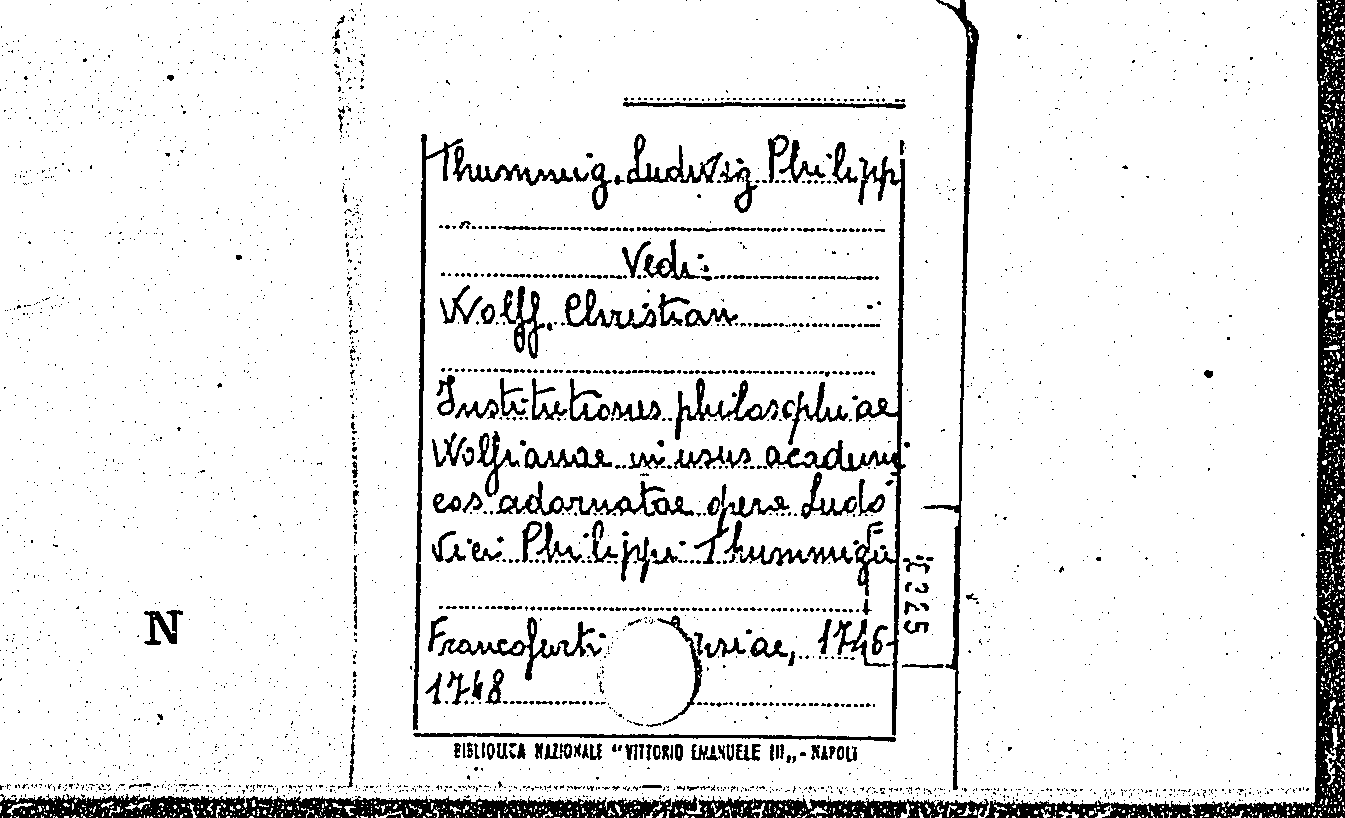 Thummig. Ludwig Philipp
Vedi:
Wolff. Christian
Institutiones philosophiae
Wolfianae in usus academi
cos adornatae opera Ludo
vici Philippi Thummigii
N
Francofurti
1746-
1748
BIBLIOTECA NAZIONALE "VITTORIO EMANUELE III„ - NAPOLI